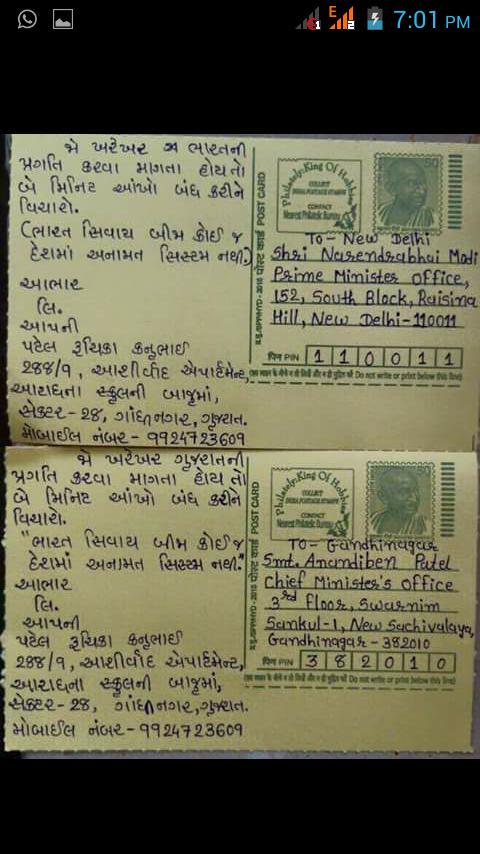 E
7:01 PM
જો ખરેખર ભારતની
પ્રગતિ કરવા માગતા હોય તો
બે મિનિટ આંખો બંધ કરીને
વિચારો.
(ભારત સિવાય બીજા કોઈ જ
દેશમાં અનામત સિસ્ટમ નથી.)
આભાર
લિ.
આપની
પટેલ રૂચિકા કનુભાઈ
288/1, આશીર્વાદ એપાર્ટમેન્ટ,
આરાધના સ્કુલની બાજુમાં,
સેક્ટર-28, ગાંધીનગર, ગુજરાત.
મોબાઈલ નંબર- 9924723609
पोस्ट कार्ड POST CARD
Philately:King Of Hobbies
COLLECT
INDIA POSTAGE STAMPS
CONTACT
Nearest Philatelic Bureau
To- New Delhi
Shri Narendrabhai Modi
Prime Minister Office,
152, South Block, Raisina
Hill, New Delhi-110011
पिन PIN 1 1 0 0 1 1
Do not write or print below this line)
જો ખરેખર ગુજરાતની
પ્રગતિ કરવા માગતા હોય તો
બે મિનિટ આંખો બંધ કરીને
વિચારો.
"ભારત સિવાય બીજા કોઈ જ
દેશમાં અનામત સિસ્ટમ નથી."
આભાર
લિ.
આપની
પટેલ રૂચિકા કનુભાઈ
288/1, આશીર્વાદ એપાર્ટમેન્ટ,
આરાધના સ્કુલની બાજુમાં,
સેક્ટર-28, ગાંધીનગર, ગુજરાત.
મોબાઈલ નંબર-9924723609
पोस्ट कार्ड POST CARD
Philately:King Of Hobbies
COLLECT
INDIA POSTAGE STAMPS
CONTACT
Nearest Philatelic Bureau
To- Gandhinagar
Smt. Anandiben Patel
Chief Minister's Office
3rd Floor, Swarnim
Sankul-1, New Sachivalaya,
Gandhinagar - 382010
पिन PIN 3 8 2 0 1 0
Do not write or print below this line)